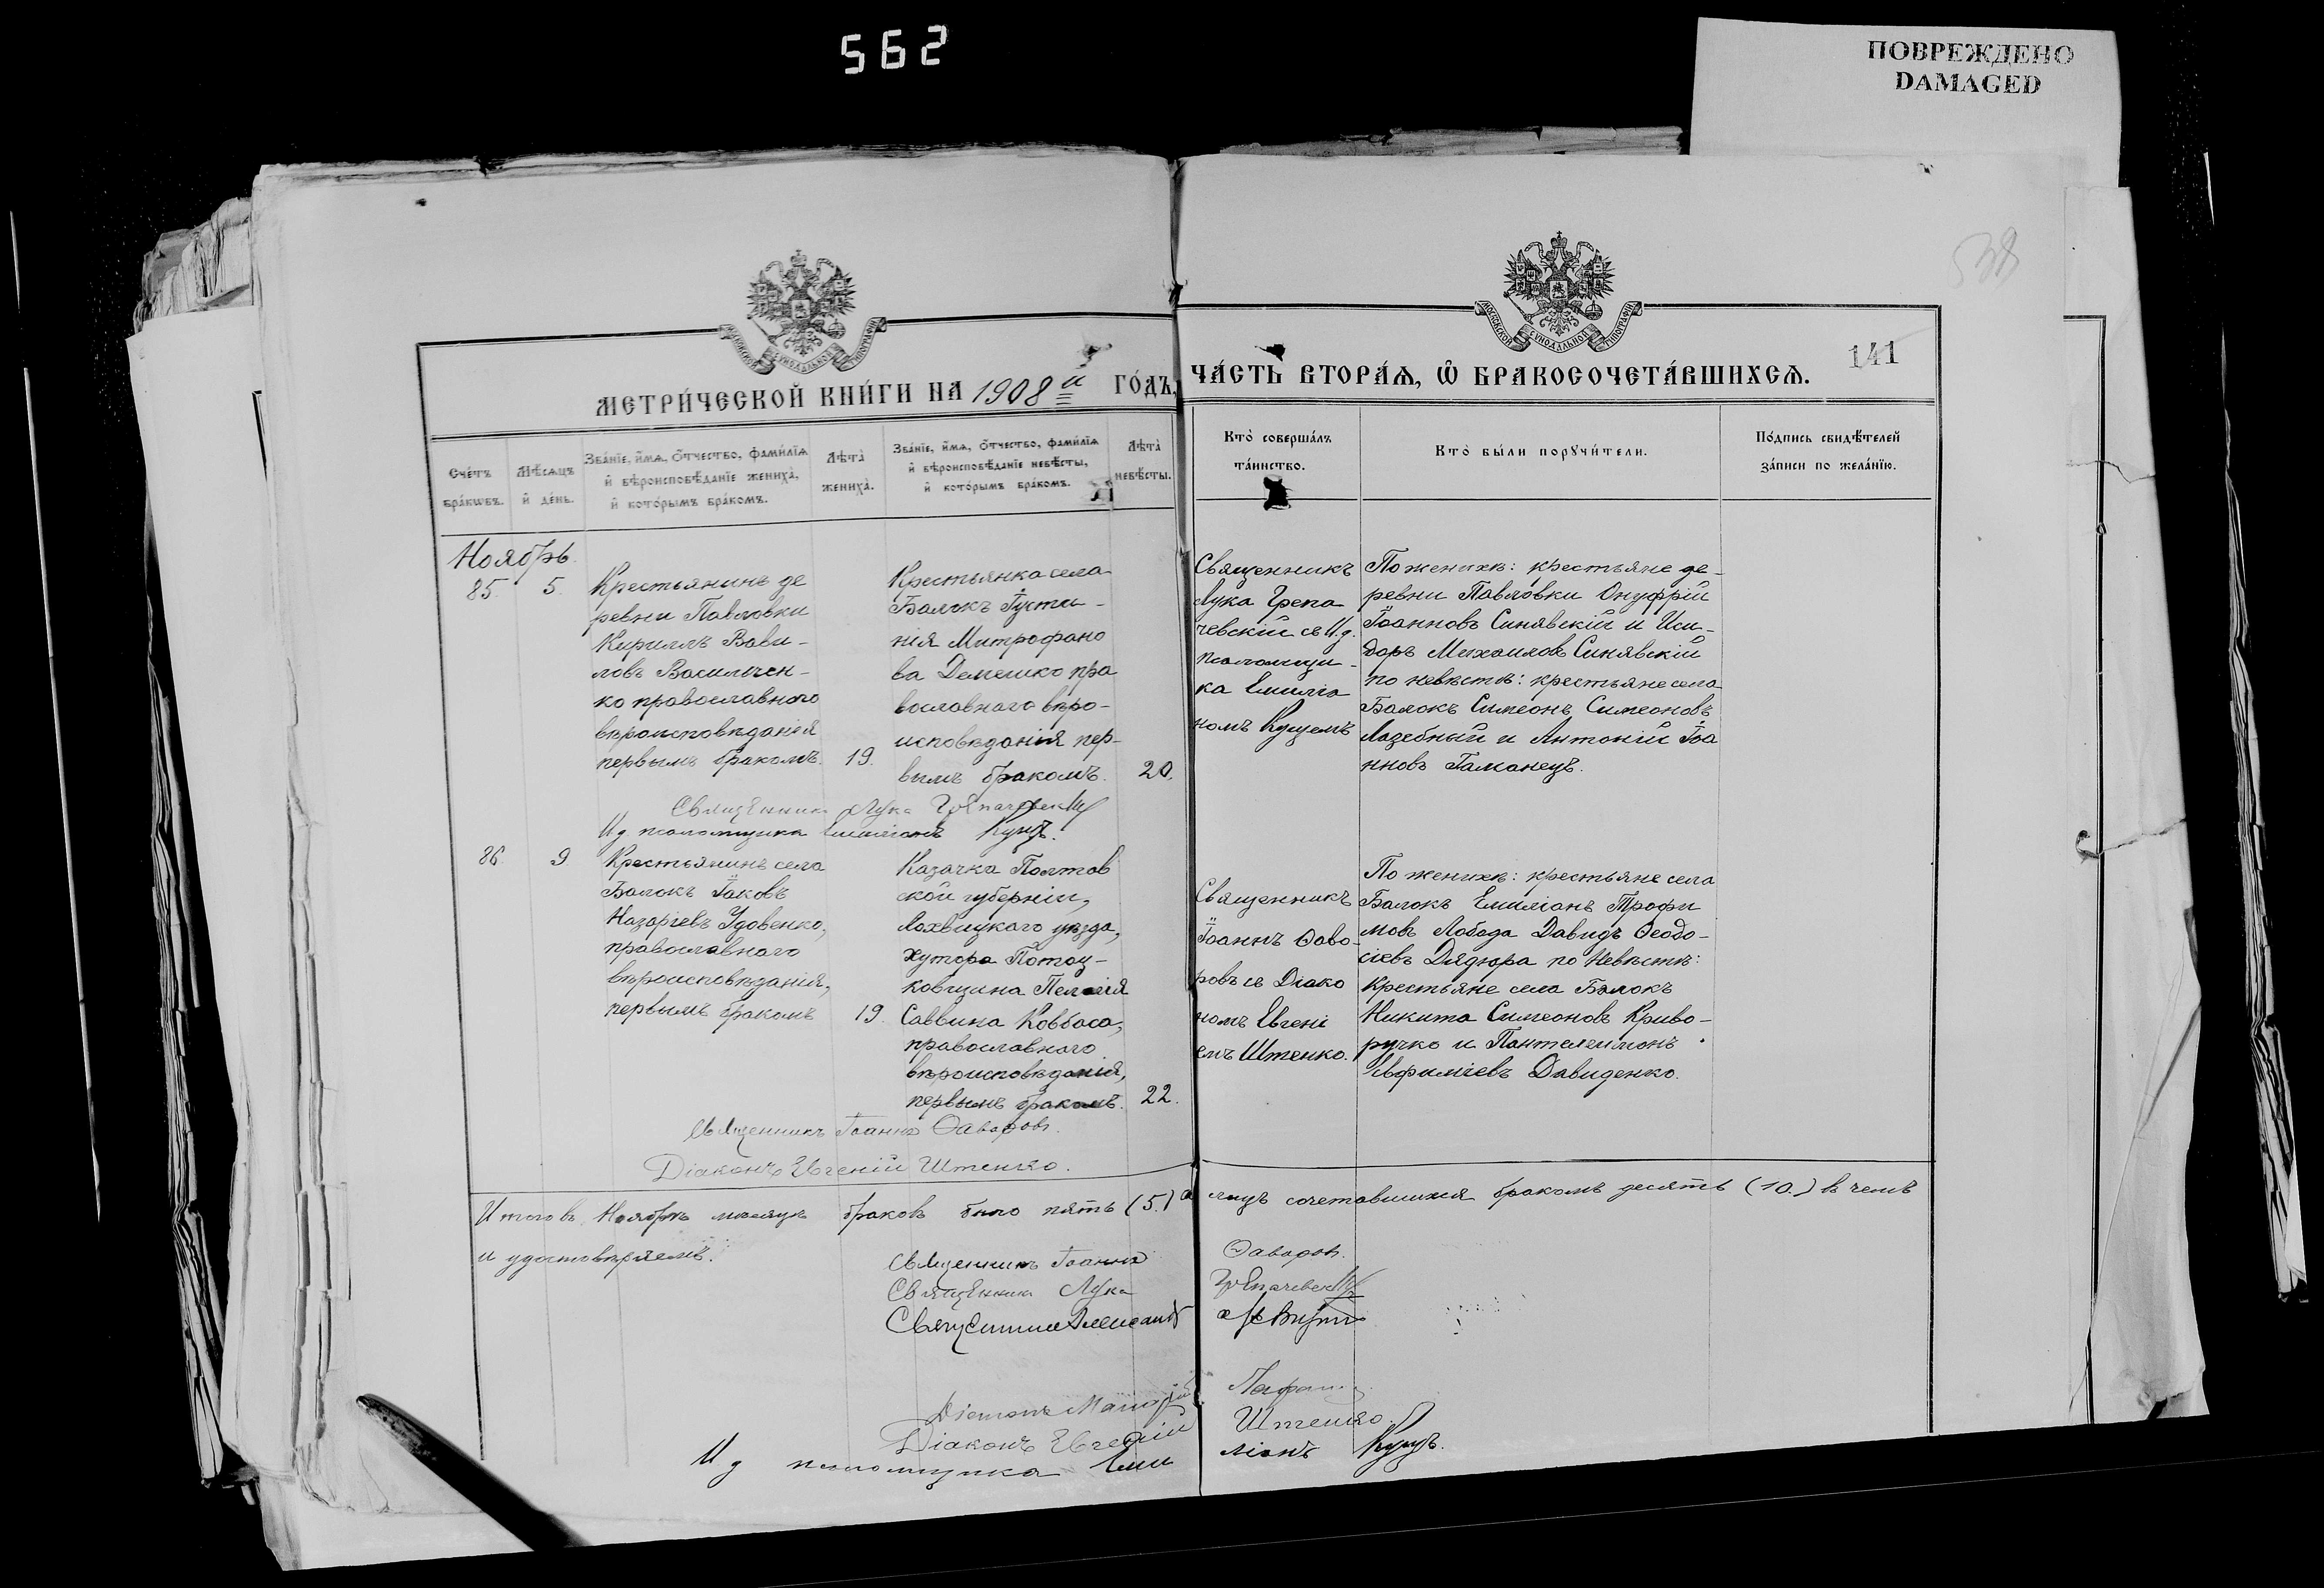 562
ПОВРЕЖДЕНО
DAMAGED
МОСКОВСКОЙ СѴНОДАЛЬНОЙ ТИПОГРАФІИ
МОСКОВСКОЙ СѴНОДАЛЬНОЙ ТИПОГРАФІИ
141
МЕТРИ́ЧЕСКОЙ КНИ́ГИ НА 1908 й ГО́ДЪ,
ЧА́СТЬ ВТОРА́Ѧ, Ѡ҆ БРАКОСОЧЕТА́ВШИХСѦ.
Сче́тъ
бра́кѡвъ.
Мѣ́сѧцъ
и҆ де́нь.
Зва́нїе, и҆́мѧ, ѻ҆́тчество, фами́лїѧ
и҆ вѣроисповѣ́данїе жениха̀,
и҆ кото́рымъ бра́комъ.
Лѣ́та̀
жениха̀.
Зва́нїе, и҆́мѧ, ѻ҆́тчество, фами́лїѧ
и҆ вѣроисповѣ́данїе невѣ́сты,
и҆ кото́рымъ бра́комъ.
Лѣ́та̀
невѣ́сты.
Кто̀ соверша́лъ
та́инство.
Кто̀ бы́ли порꙋчи́тели.
По́дпись свидѣ́телей
за́писи по жела́нїю.
Ноябрь.
85. 5.
Крестьянинъ де
ревни Павловки
Кириллъ Вави-
ловъ Васильчен-
ко православнаго
вѣроисповѣданія
первымъ бракомъ. 19.
Крестьянка села
Балокъ Іусти-
нія Митрофано
ва Демешко пра
вославнаго вѣро-
исповѣданія пер-
вымъ бракомъ. 20.
Священникъ
Лука Грепа
чевскій съ И. д.
псаломщи-
ка Емилiа
номъ Куцемъ
По женихѣ: крестьяне де-
ревни Павловки Онуфрій
Іоанновъ Синявскій и Иси-
доръ Михаиловъ Синявскій
по невѣстѣ: крестьяне села
Балокъ Симеонъ Симеоновъ
Лазебный и Антоній Іоа
нновъ Гаманецъ.
Священникъ Лука Грепачевскій
И д псаломщика Емиліанъ Куцъ.
86. 9
Крестьянинъ села
Балокъ Іаковъ
Назаріевъ Удовенко,
православнаго
вѣроисповѣданія,
первымъ бракомъ 19.
Казачка Полтав
ской губерніи,
Лохвицкаго уѣзда,
хутора Потоц-
ковщина Пелагія
Саввина Ковбаса,
православнаго
вѣроисповѣданія,
первымъ бракомъ. 22.
Священникъ
Іоаннъ Ѳаво-
ровъ съ Діако
номъ Евгені
емъ Штенко.
По женихѣ: крестьяне села
Балокъ Емиліанъ Трофи
мовъ Лобода Давидъ Ѳеодо-
сіевъ Дядюра по невѣстѣ:
крестьяне села Балокъ
Никита Симеоновъ Криво-
ручко и Пантелеимонъ
Евфиміевъ Давиденко.
Священникъ Іоаннъ Ѳаворовъ.
Діаконъ Евгеній Штенко.
Итого въ Ноябрѣ мѣсяцѣ браковъ было пять (5.) а лицъ сочетавшихся бракомъ десять (10.) въ чемъ
и удостовѣряемъ.
Священникъ Іоаннъ Ѳаворовъ.
Священникъ Лука Грепачевскій
Священникъ
Діаконъ
Діаконъ Евгеній Штенко.
И д псаломщика Емиліанъ Куцъ.